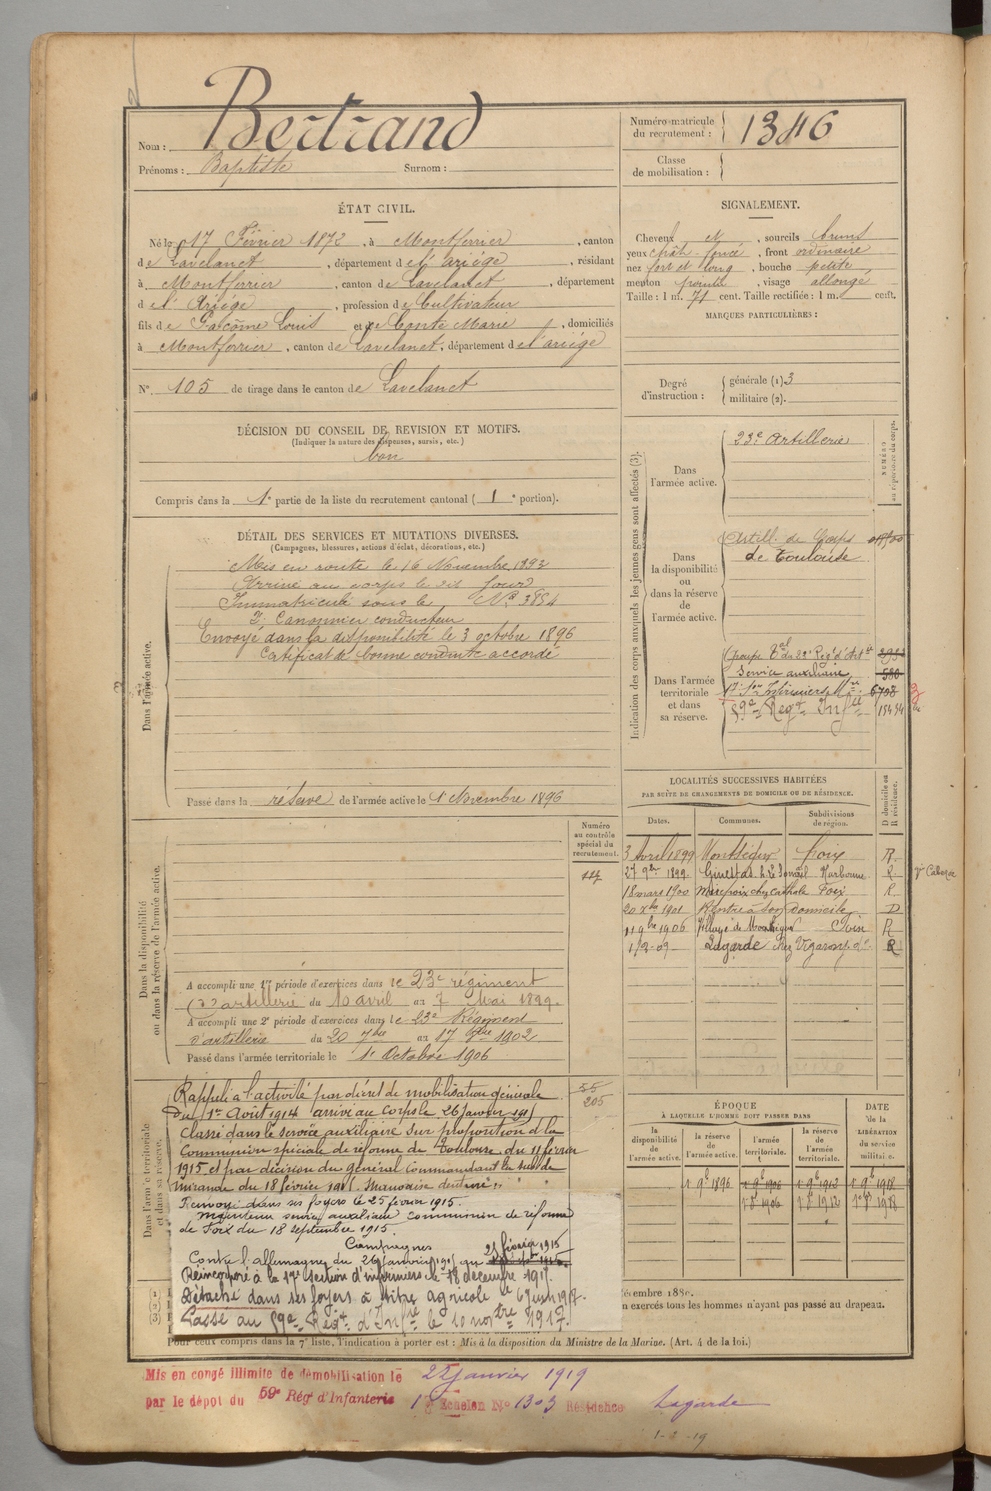 Nom : Bertrand
Prénoms : Baptiste Surnom :
Numéro matricule du recrutement : 1346
Classe de mobilisation :
ÉTAT CIVIL.
Né le 17 Février 1872, à Montferrier, canton
de Lavelanet, département de l'Ariège, résidant
à Montferrier, canton de Lavelanet, département
de l'Ariège, profession de Cultivateur
fils de Pacôme Louis et de Conte Marie, domiciliés
à Montferrier, canton de Lavelanet, département de l'Ariége
N° 105 de tirage dans le canton de Lavelanet
DÉCISION DU CONSEIL DE REVISION ET MOTIFS.
(Indiquer la nature des dispenses, sursis, etc.)
bon
Compris dans la 1e partie de la liste du recrutement cantonal ( 1 e portion).
SIGNALEMENT.
Cheveux N, sourcils bruns
yeux chât. foncé, front ordinaire
nez fort et long, bouche petite
menton pointu, visage allongé
Taille : 1 m. 71 cent. Taille rectifiée : 1 m. cent.
MARQUES PARTICULIÈRES :
Degré d'instruction :
générale (1) 3
militaire (2).
DÉTAIL DES SERVICES ET MUTATIONS DIVERSES.
(Campagnes, blessures, actions d'éclat, décorations, etc.)
Dans l'armée active.
Mis en route le 16 Novembre 1893
Arrivé au corps le dit Jour
Immatriculé sous le N° 3854
2e Canonnier conducteur
Envoyé dans la disponibilité le 3 octobre 1896
Certificat de bonne conduite accordé
Passé dans la réserve de l'armée active le 1r Novembre 1896
Indication des corps auxquels les jeunes gens sont affectés (3).
NUMÉRO au répertoire du corps.
Dans l'armée active.
23e Artillerie
Dans la disponibilité ou dans la réserve de l'armée active.
Artill. de Corps
de Toulouse
Dans l'armée territoriale et dans sa réserve.
Groupe Tal du 23e Régt d'Artie
Service auxiliaire 580
17e Son Infirmiers Mre 6708
59e Regt Infie 15434
LOCALITÉS SUCCESSIVES HABITÉES
PAR SUITE DE CHANGEMENTS DE DOMICILE OU DE RÉSIDENCE.
Dates. Communes. Subdivisions de région. D domicile ou R résidence.
3 Avril 1899 Montségur Foix R.
27 9bre 1899 Ginestas Narbonne R.
18 mars 1900 Mirepoix Foix R
20 Xbre 1901 Rentré à son Domicile D
1906 Village de Foix R
1/2-09 Lagarde chez R
Dans la disponibilité ou dans la réserve de l'armée active.
Numéro au contrôle spécial du recrutement.
A accompli une 1re période d'exercices dans le 23e régiment
d'artillerie du 10 avril au 7 Mai 1899.
A accompli une 2e période d'exercices dans le 23e Régiment
d'artillerie du 20 7bre au 17 8bre 1902
Passé dans l'armée territoriale le 1r Octobre 1906
Dans l'armée territoriale et dans sa réserve.
Rappelé à l'activité par décret de mobilisation générale
du 1er Août 1914 arrivé au corps le 26 janvier 1915
Classé dans le service auxiliaire sur proposition de la
Commission spéciale de réforme de Toulouse du 11 février
1915 et par décision du général commandant la subd. de
Mirande du 18 février 1915.
Renvoyé dans ses foyers le 25 février 1915.
Maintenu service auxiliaire commission de réforme
de Foix du 18 septembre 1915
Campagnes
Contre l'allemagne du 26 janvier 1915 au 25 février 1915
Réincorporé à la 17e section d'infirmiers le 18 décembre 1915.
Détaché dans ses foyers à titre agricole le 6 Juin 1917.
Passé au 59e Régt d'Infie le 10 nobre 1917.
55
205
ÉPOQUE
À LAQUELLE L'HOMME DOIT PASSER DANS
la disponibilité de l'armée active.
la réserve de l'armée active.
l'armée territoriale.
la réserve de l'armée territoriale.
DATE de la LIBÉRATION du service militaire.
1r 9b 1896 1r 9b 1906 1r 9b 1912 1r 9b 1918
1r 8b 1906 1r 8b 1912 1r 8b 1918
décembre 1889.
n exercés tous les hommes n'ayant pas passé au drapeau.
Pour ceux compris dans la 7e liste, l'indication à porter est : Mis à la disposition du Ministre de la Marine. (Art. 4 de la loi.)
Mis en congé illimité de démobilisation le 25 janvier 1919
par le dépot du 59e Rég d'Infanterie 1er Echelon No 1303 Résidence Lagarde